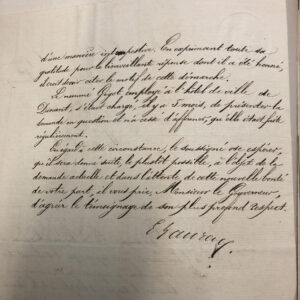 d'une manière intempestive. En exprimant toute sa
gratitude pour la bienveillante réponse dont il a été honoré,
il croit devoir citer le motif de cette démarche.
Le nommé employé à l'hôtel de ville de
Dinant, s'était chargé, il y a 5 mois, de présenter la
demande en question et n'a cessé d'affirmer, qu'elle était faite
régulièrement.
En égard à cette circonstance, le soussigné ose espérer,
qu'il sera donné suite, le plus tôt possible, à l'objet de la
demande actuelle et dans l'attente de cette nouvelle bonté
de votre part, il vous prie, Monsieur le Gouverneur,
d'agréer le témoignage de son plus profond respect.